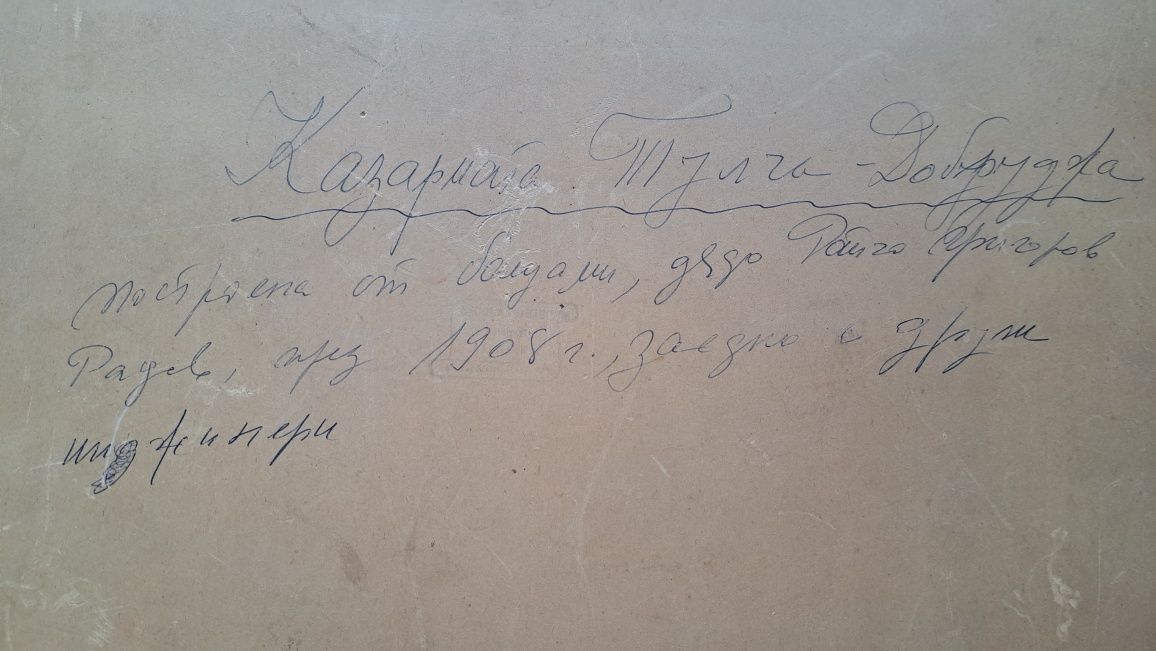 Казармата Тулча - Добруджа
построена от                дядо Райчо Григоров
Радев, през 1908 г., заедно с други
инжинери